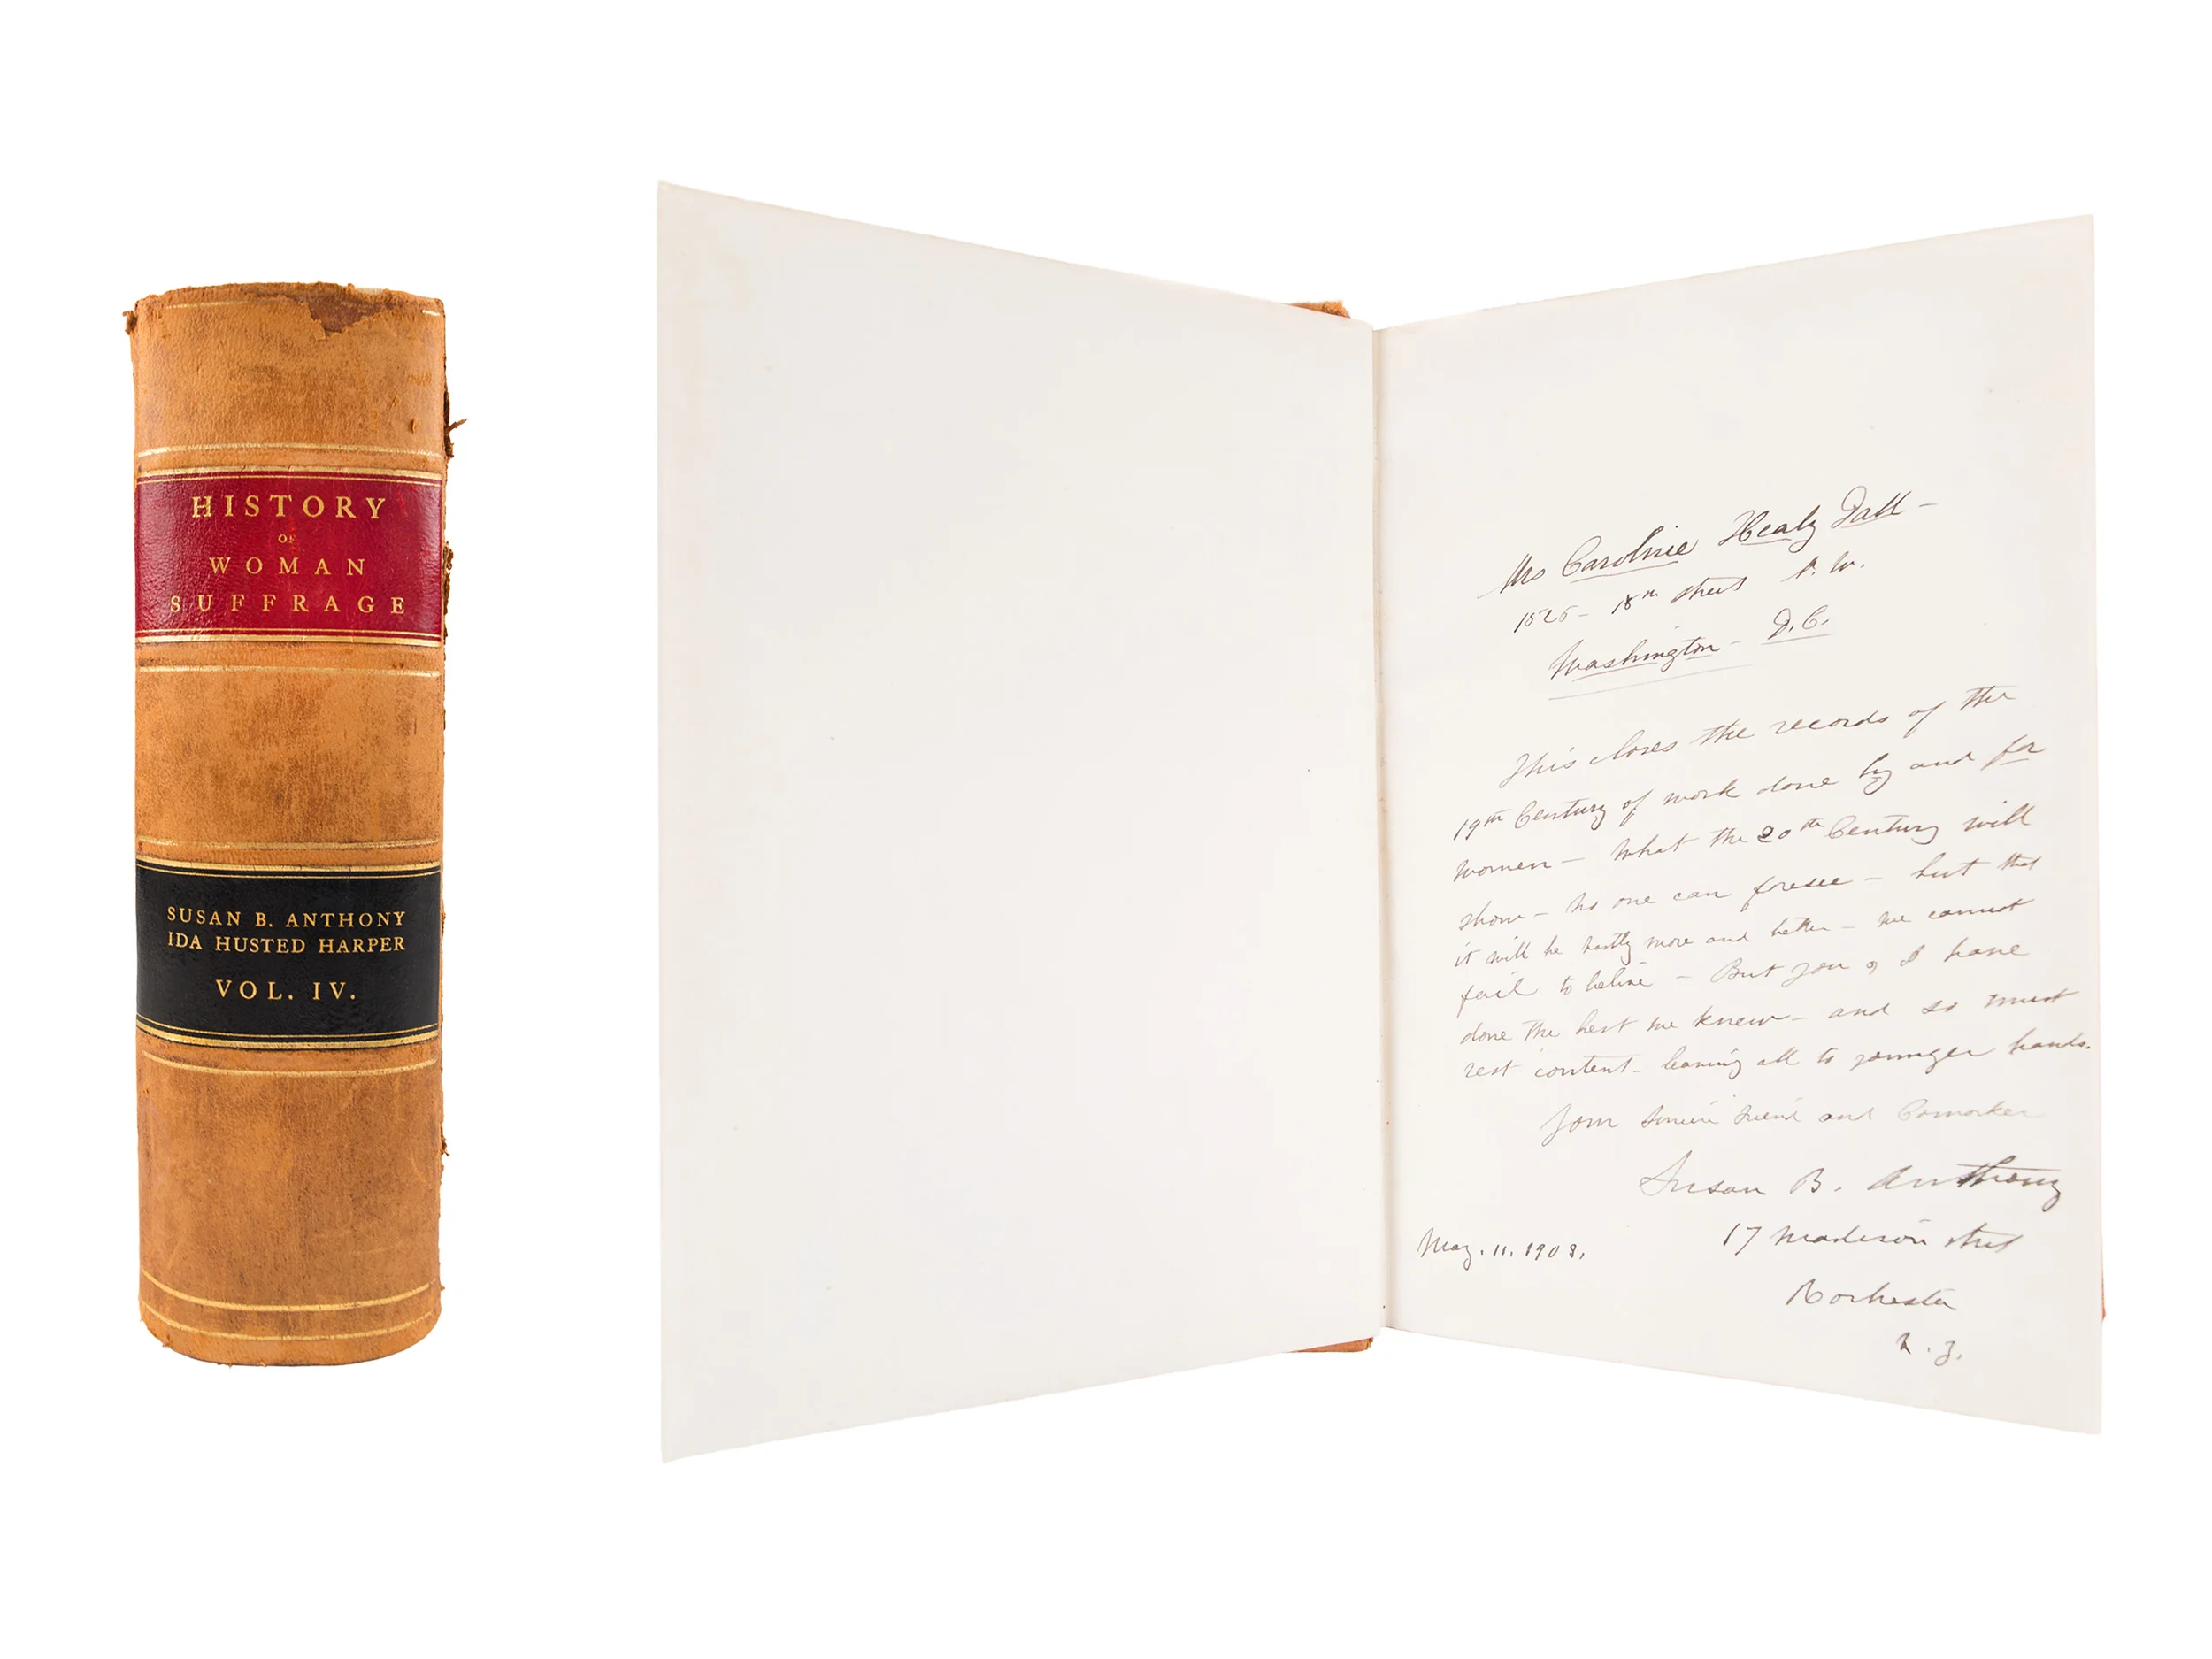 HISTORY
OF
WOMAN
SUFFRAGE
SUSAN B. ANTHONY
IDA HUSTED HARPER
VOL. IV.
Mrs Caroline Healy Dall -
1526 - 18th street N. W.
Washington - D.C.
This closes the records of the
19th Century of work done by and for
women - what the 20th Century will
show - no one can foresee - but that
it will be vastly more and better - we cannot
fail to believe - But you & I have
done the best we knew - and so must
rest content - leaving all to younger hands.
Your sincere friend and Coworker
Susan B. Anthony
May. 11. 1903.
17 Madison street
Rochester
N. Y.